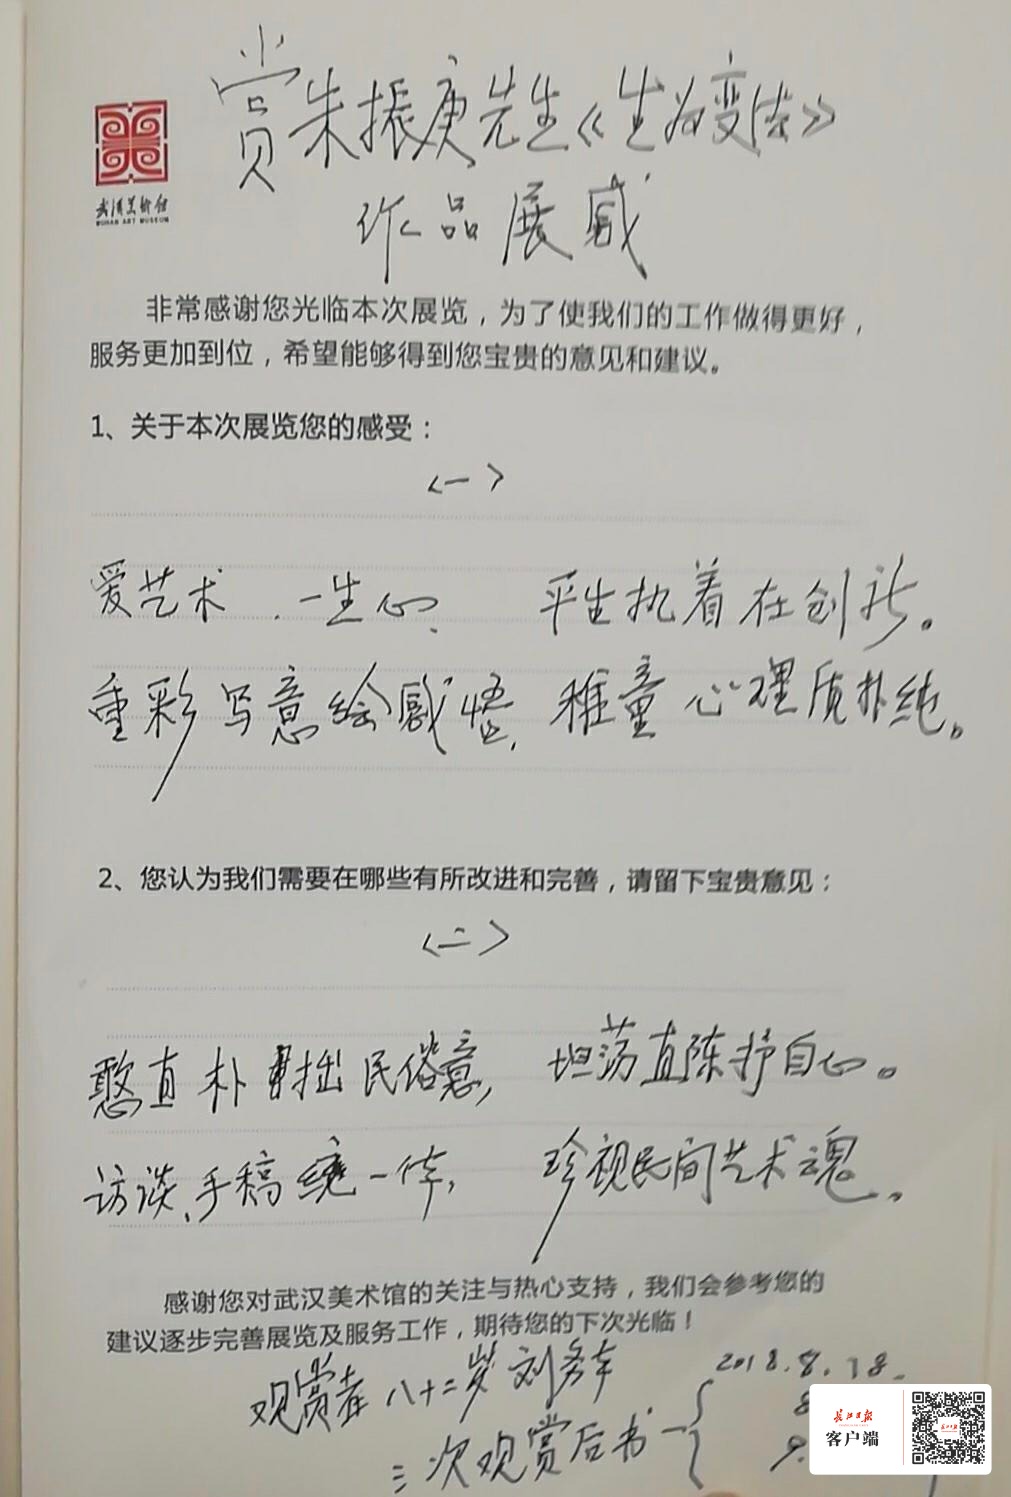 赏朱振庚先生《生为变法》
作品展感
武汉美术馆
WUHAN ART MUSEUM
非常感谢您光临本次展览，为了使我们的工作做得更好，
服务更加到位，希望能够得到您宝贵的意见和建议。
1、关于本次展览您的感受：
<一>
爱艺术、一生心、 平生执着在创新。
重彩写意绘感悟, 稚童心理质朴纯。
2、您认为我们需要在哪些有所改进和完善，请留下宝贵意见：
<二>
憨直朴拙民俗意, 坦荡直陈抒自心。
访谈、手稿绕一体, 珍视民间艺术魂。
感谢您对武汉美术馆的关注与热心支持，我们会参考您的
建议逐步完善展览及服务工作，期待您的下次光临！
观赏者八十二岁刘
2018.8.18.
三次观赏后书
8
9.
长江日报
客户端